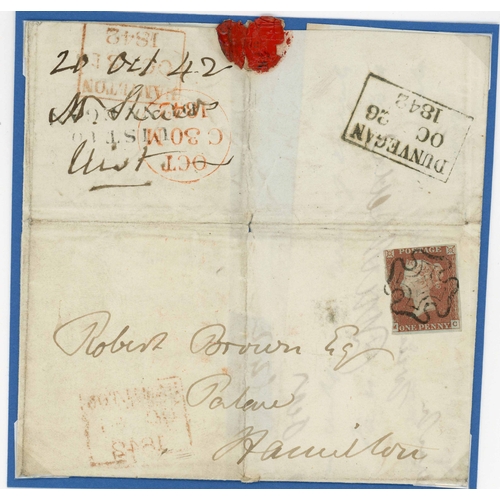 20 Oct 42
Uist
DUNVEGAN
OC 26
1842
1842
HAMILTON
OCT
C 30 M
1842
POSTAGE
ONE PENNY
Robert Brown Esq
Palace
Hamilton
1842